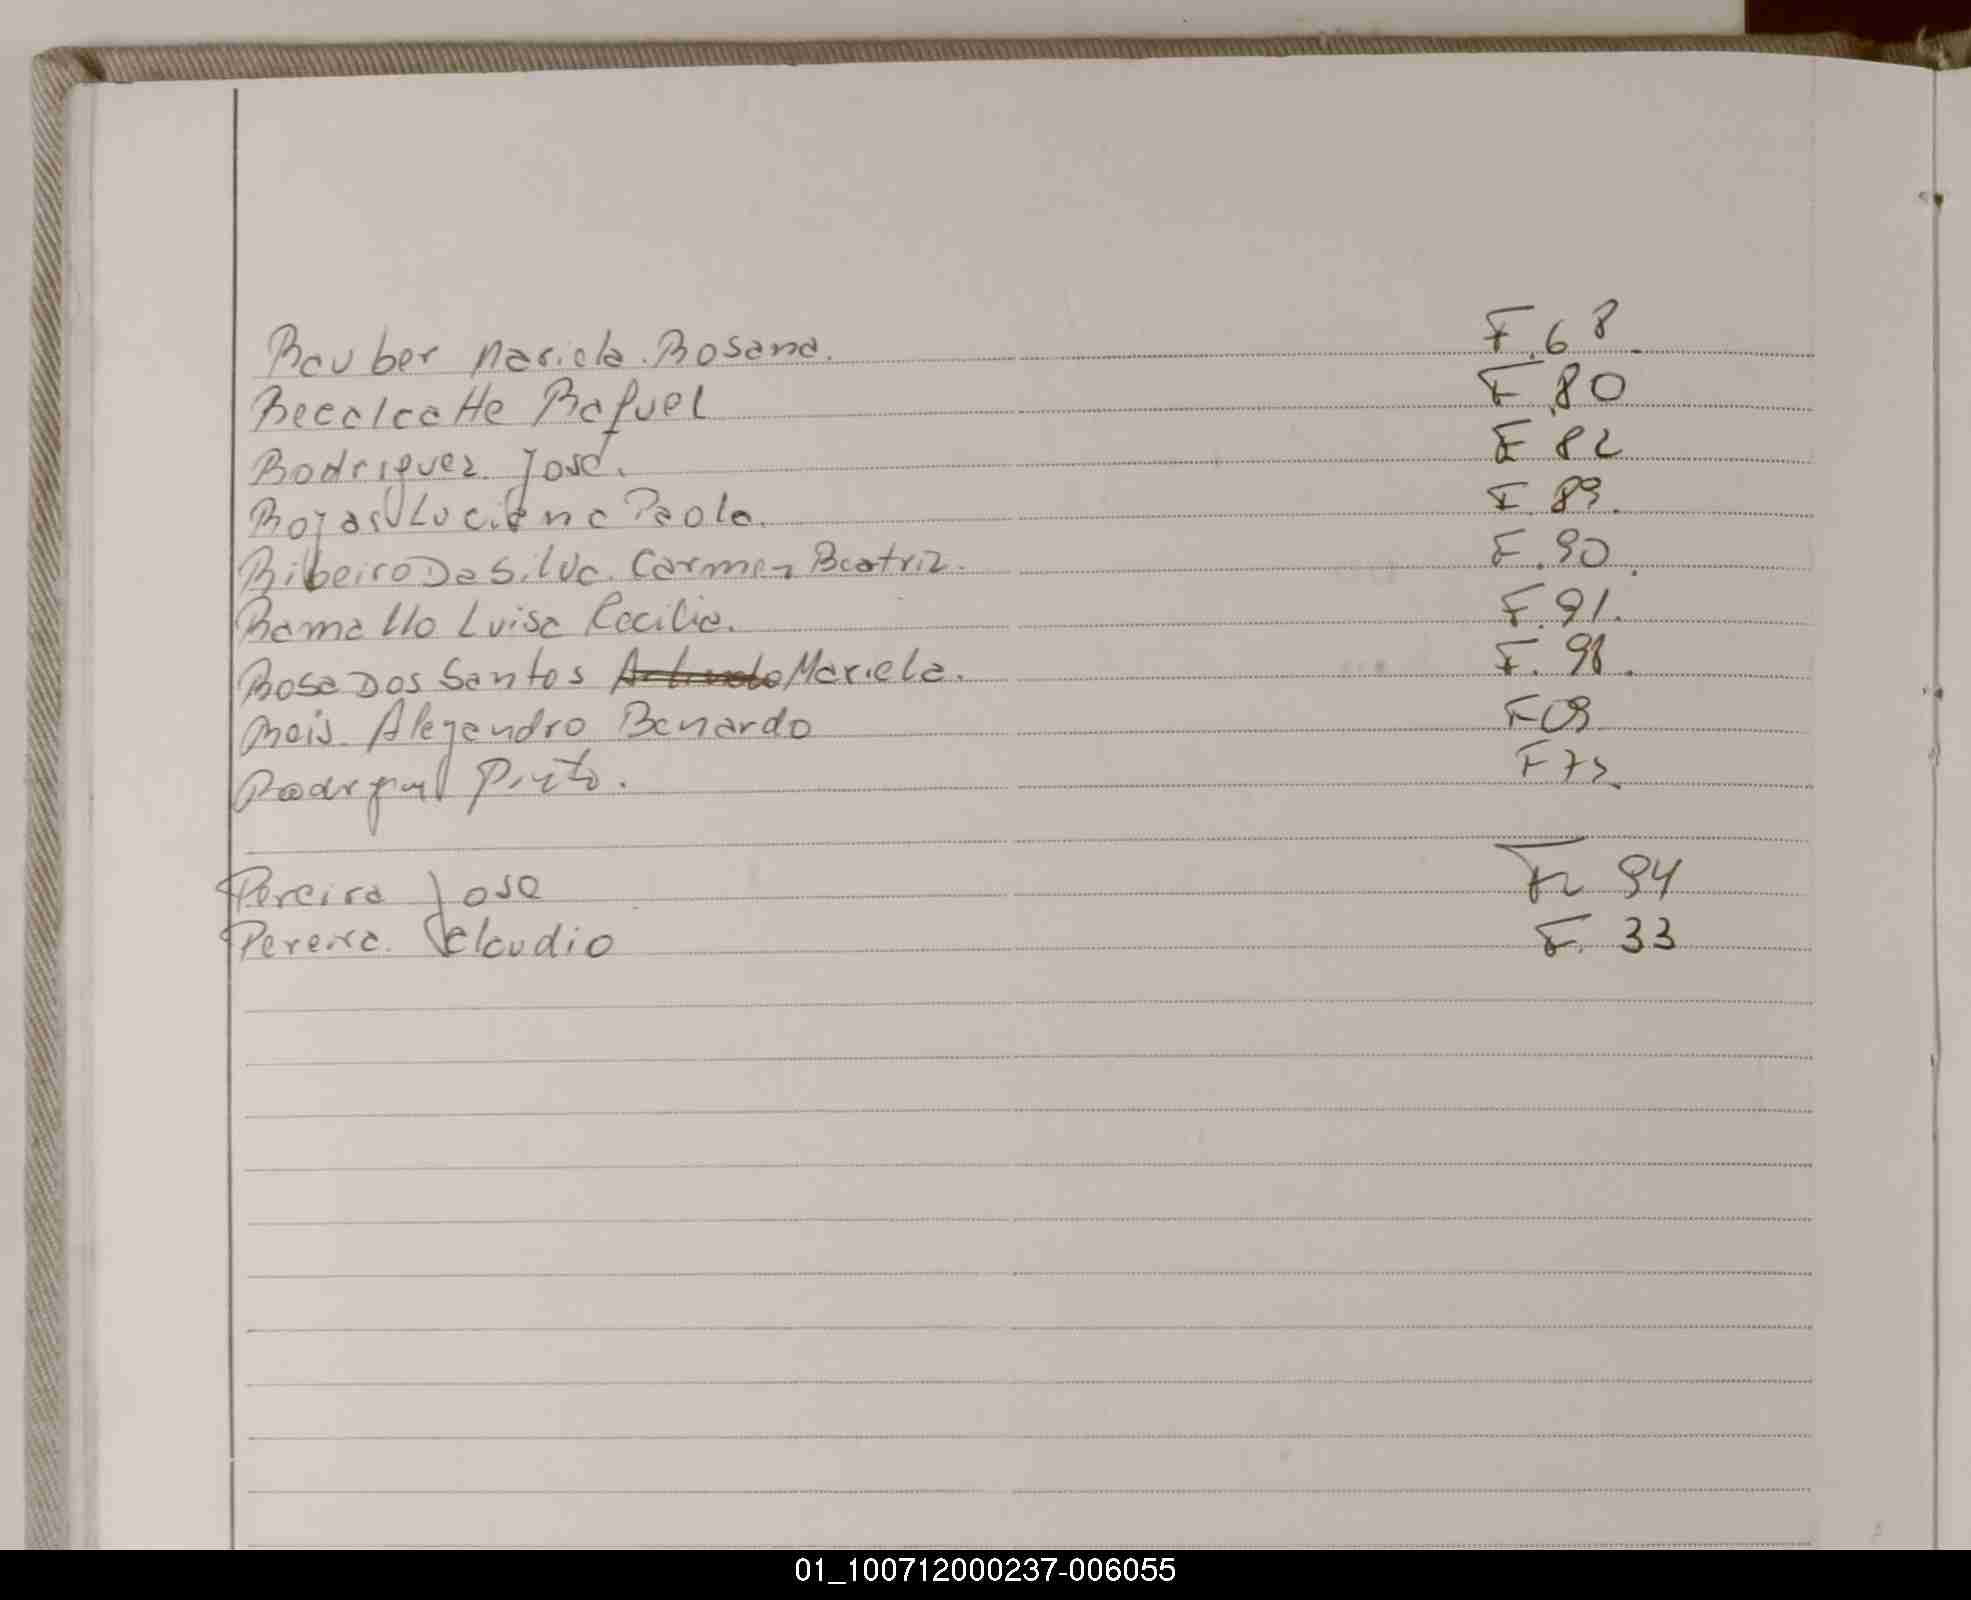 Rauber Mariela Rosana. F.68.
Recalcatte Rafael F.80
Rodriguez José. F 82
Rojas Luciana Paola. F.89.
Ribeiro Da Silva. Carmen Beatriz. F.90.
Ramallo Luisa Cecilia. F.91.
Rosa Dos Santos Mariela. F.98.
Reis Alejandro Benardo F09
Pinto. F 75
Pereira Jose F 94
Pereira. Claudio F. 33
01_100712000237-006055